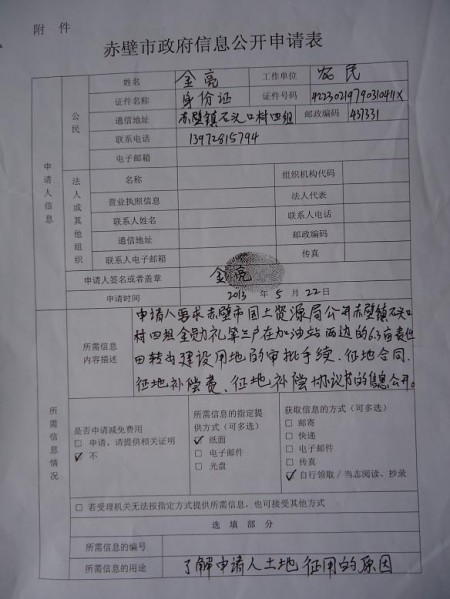 附 件
赤壁市政府信息公开申请表
申请人信息
公民
姓名 金亮 工作单位 农民
证件名称 身份证 证件号码 42230219790310411X
通信地址 赤壁镇石头口村四组 邮政编码 437331
联系电话 13972815794
电子邮箱
法人或其他组织
名称 组织机构代码
营业执照信息 法人代表
联系人姓名 联系人电话
通信地址 邮政编码
联系人电子邮箱 传真
申请人签名或者盖章 金亮
申请时间 2013 年 5 月 22 日
所需信息情况
所需信息内容描述
申请人要求赤壁市国土资源局公开赤壁镇石头口
村四组金勋礼等三户在加油站西边的6.3亩责任
田转为建设用地的审批手续、征地合同、
征地补偿费、征地补偿协议书的信息公开。
是否申请减免费用
□ 申请。请提供相关证明
✓ 不
所需信息的指定提供方式(可多选)
✓ 纸面
□ 电子邮件
□ 光盘
获取信息的方式(可多选)
□ 邮寄
□ 快递
□ 电子邮件
□ 传真
✓ 自行领取/当志阅读、抄录
□ 若受理机关无法按指定方式提供所需信息,也可接受其他方式
选 填 部 分
所需信息的编号
所需信息的用途 了解申请人土地征用的原因